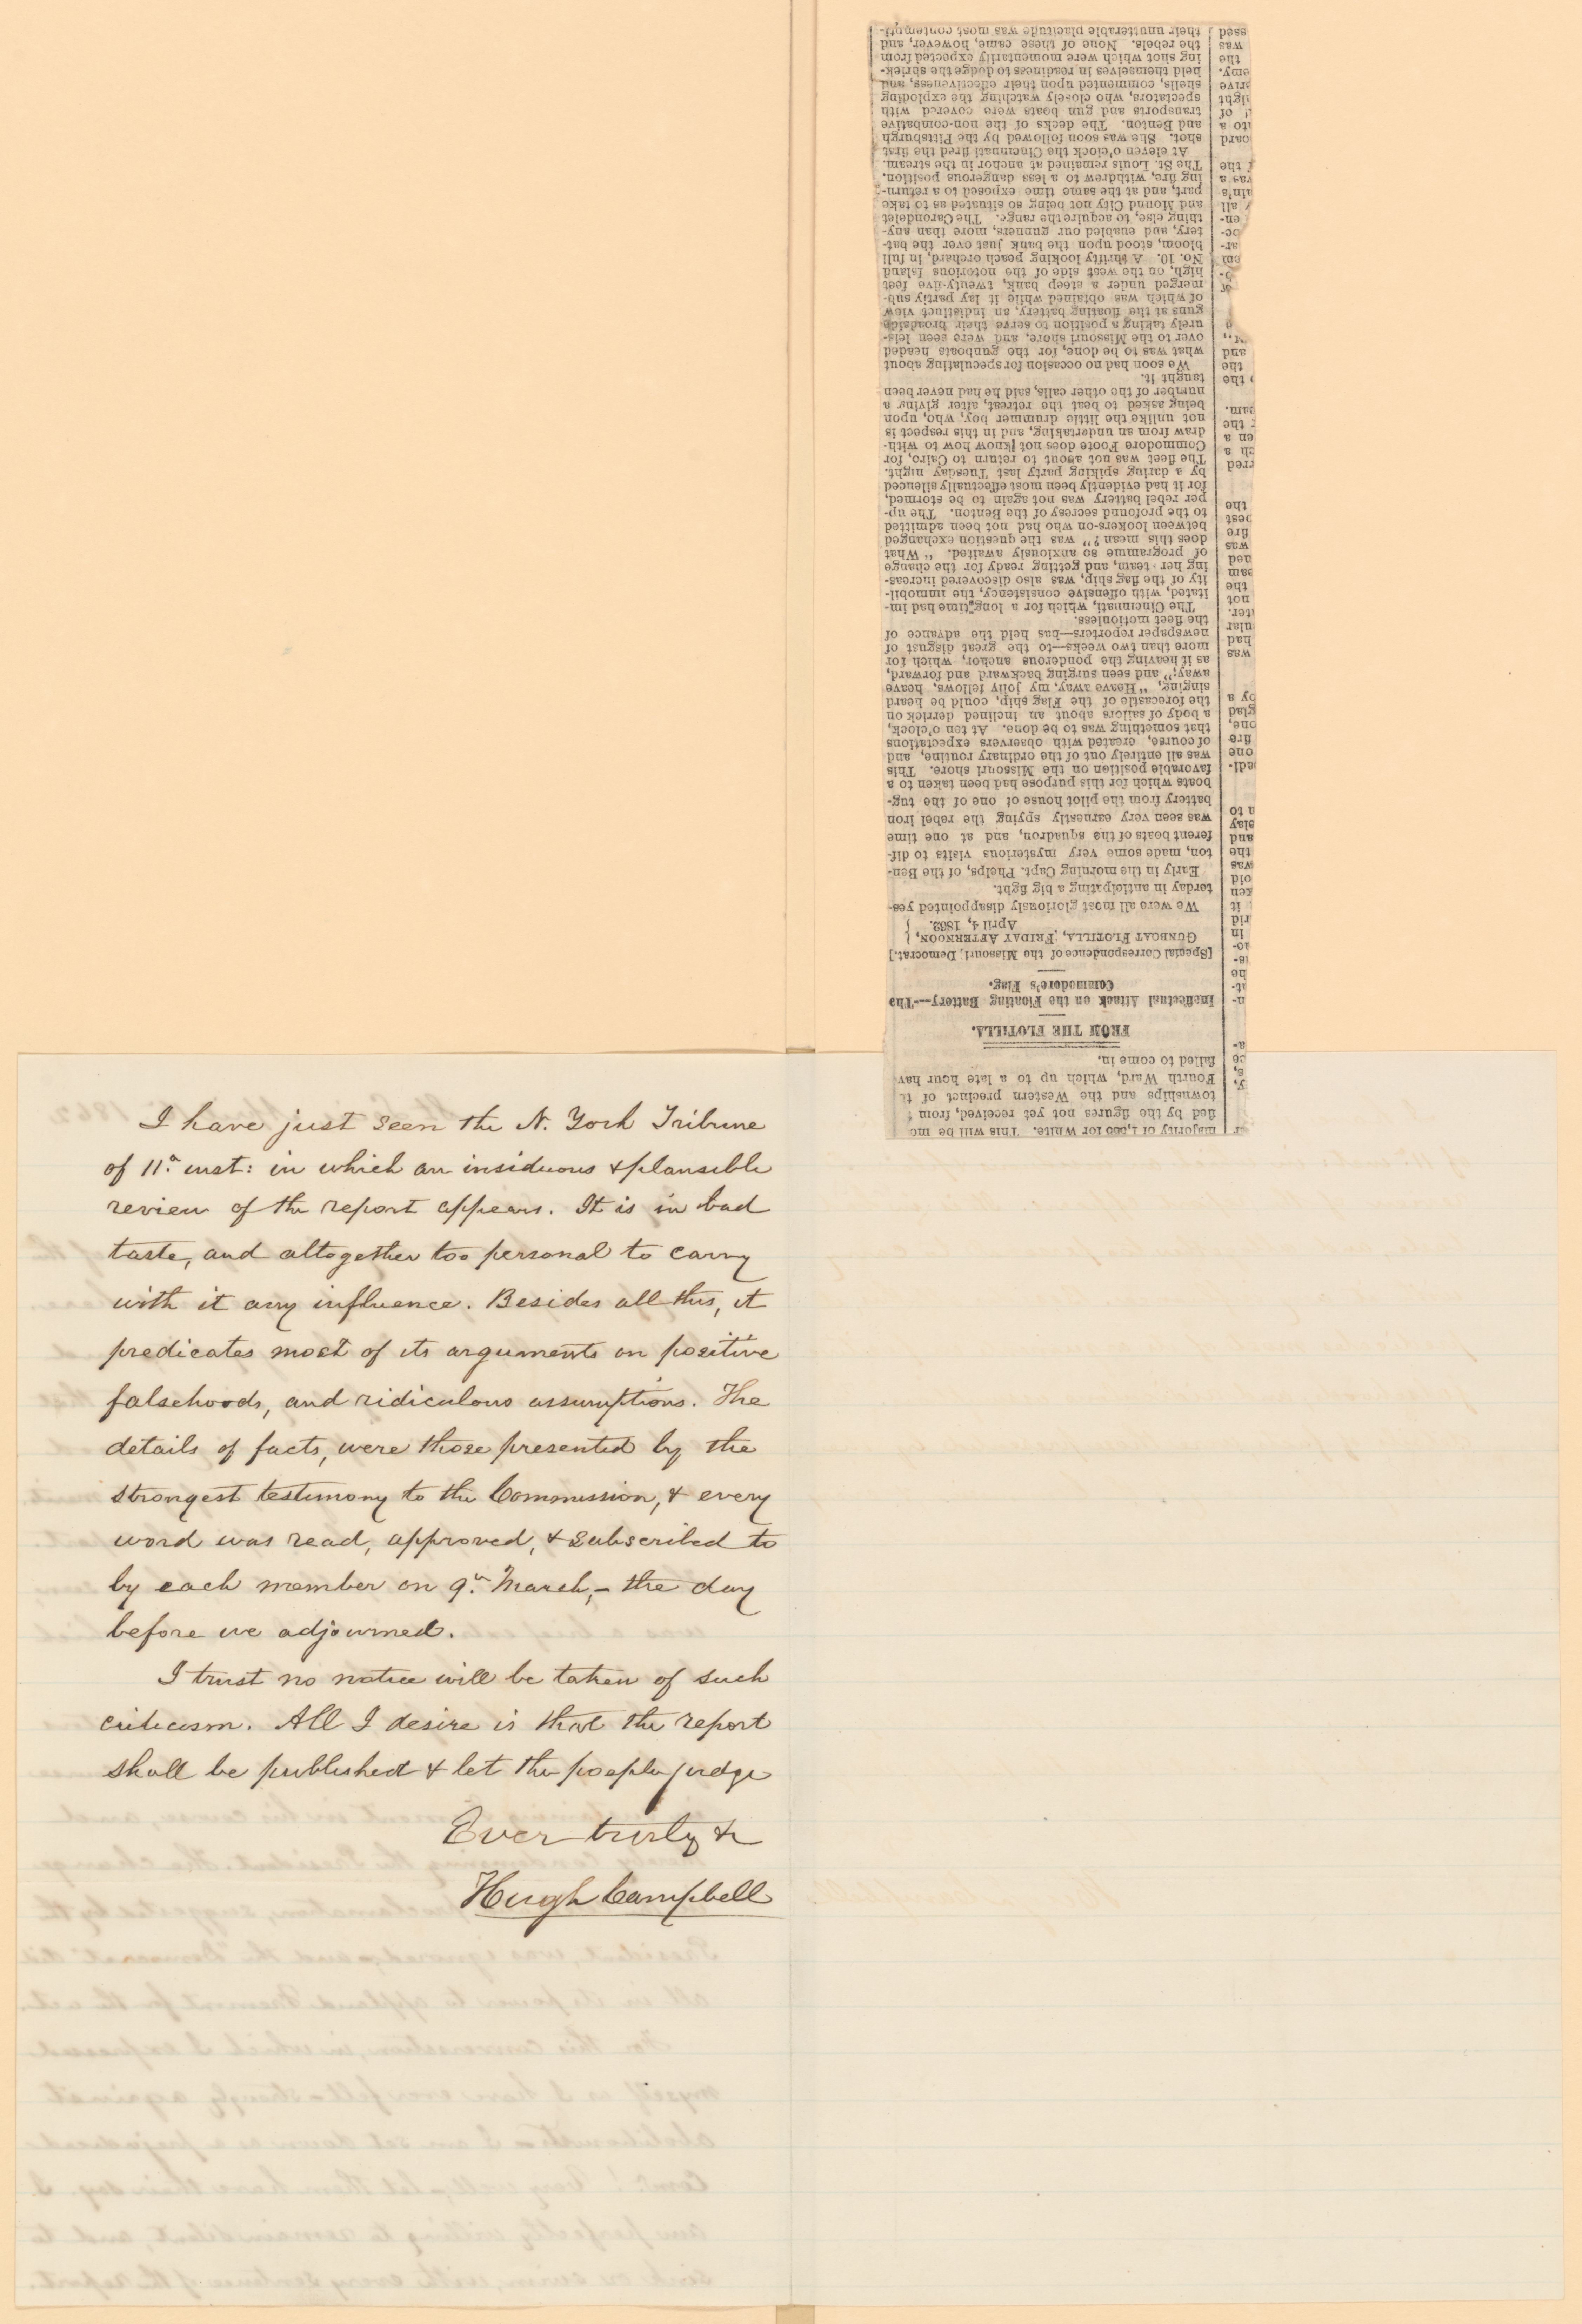 I have just seen the N. York Tribune
of 11th inst: in which an insiduous & plausible
review of the report appears. It is in bad
taste, and altogether too personal to carry
with it any influence. Besides all this, it
predicates most of its arguments on positive
falsehoods, and ridiculous assumptions. The
details of facts, were those presented by the
strongest testimony to the Commission, & every
word was read, approved, & subscribed to
by each member on 9th March, – the day
before we adjourned.
I trust no notice will be taken of such
criticism. All I desire is that the report
shall be published & let the people judge
Ever truly &c
Hugh Campbell
majority of for White. This will be
fied by the figures not yet received, from
townships and the Western precinct of
Fourth Ward, which up to a late hour hav
failed to come in.
FROM THE FLOTILLA.
Ineffectual Attack on the Floating Battery---The
Commodore's Flag.
[Special Correspondence of the Missouri Democrat.]
GUNBOAT FLOTILLA, FRIDAY AFTERNOON,
April 4, 1862.
We were all most gloriously disappointed yes-
terday in anticipating a big fight.
Early in the morning Capt. Phelps, of the Ben-
ton, made some very mysterious visits to dif-
ferent boats of the squadron, and at one time
was seen very earnestly spying the rebel iron
battery from the pilot house of one of the tug-
boats which for this purpose had been taken to a
favorable position on the Missouri shore. This
was all entirely out of the ordinary routine, and
of course, created with observers expectations
that something was to be done. At ten o'clock,
a body of sailors about an inclined derrick on
the forecastle of the Flag ship, could be heard
singing, "Heave away, my jolly fellows, heave
away;" and seen surging backward and forward,
as if heaving the ponderous anchor, which for
more than two weeks—to the great disgust of
newspaper reporters—has held the advance of
the fleet motionless.
The Cincinnati, which for a long time had im-
itated, with offensive consistency, the immobil-
ity of the flag ship, was also discovered increas-
ing her team, and getting ready for the change
of programme so anxiously awaited. "What
does this mean?" was the question exchanged
between lookers-on who had not been admitted
to the profound secresy of the Benton. The up-
per rebel battery was not again to be stormed,
for it had evidently been most effectually silenced
by a daring spiking party last Tuesday night.
The fleet was not about to return to Cairo, for
Commodore Foote does not know how to with-
draw from an undertaking, and in this respect is
not unlike the little drummer boy, who, upon
being asked to beat the retreat, after giving a
number of the other calls, said he had never been
taught it.
We soon had no occasion for speculating about
what was to be done, for the gunboats headed
over to the Missouri shore, and were seen leis-
urely taking a position to serve their broadside
guns at the floating battery, an indistinct view
of which was obtained while it lay partly sub-
merged under a steep bank, twenty-five feet
high, on the west side of the notorious Island
No. 10. A thrifty looking peach orchard, in full
bloom, stood upon the bank just over the bat-
tery, and enabled our gunners, more than any-
thing else, to acquire the range. The Carondelet
and Mound City not being so situated as to take
part, and at the same time exposed to a return-
ing fire, withdrew to a less dangerous position.
The St. Louis remained at anchor in the stream.
At eleven o'clock the Cincinnati fired the first
shot. She was soon followed by the Pittsburgh
and Benton. The decks of the non-combative
transports and gun boats were covered with
spectators, who closely watching the exploding
shells, commented upon their effectiveness, and
held themselves in readiness to dodge the shriek-
ing shot which were momentarily expected from
the rebels. None of these came, however, and
their unutterable placitude was most contempti-